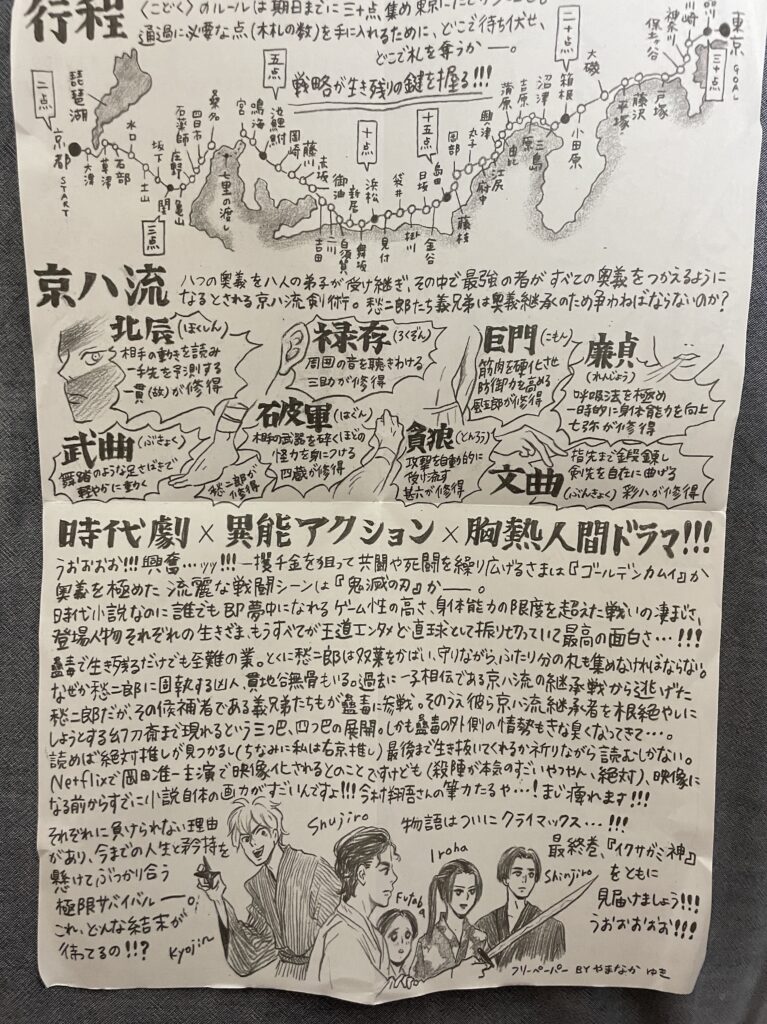 行程
〈こどく〉のルールは期日までに三十点集め東京にたどりつくこと。
通過に必要な点(木札の数)を手に入れるために、どこで待ち伏せ、
どこで札を奪うかー。
戦略が生き残りの鍵を握る!!!
二点
京都
START
琵琶湖
大津
草津
石部
水口
土山
坂下
三点
関
亀山
庄野
石薬師
四日市
桑名
七里の渡し
宮
鳴海
五点
池鯉鮒
岡崎
藤川
赤坂
御油
吉田
二川
白須賀
新居
舞坂
十点
浜松
見付
袋井
掛川
日坂
金谷
十五点
島田
藤枝
岡部
丸子
府中
江尻
興津
由比
蒲原
吉原
原
沼津
三島
二十点
箱根
小田原
大磯
平塚
藤沢
戸塚
保土ヶ谷
神奈川
川崎
品川
三十点
東京
GOAL
京八流
八つの奥義を八人の弟子が受け継ぎ、その中で最強の者がすべての奥義をつかえるように
なるとされる京八流剣術。愁二郎たち義兄弟は奥義継承のため争わねばならないのか?
北辰(ほくしん)
相手の動きを読み
一手先を予測する
一貫(故)が修得
禄存(ろくぞん)
周囲の音を聴きわける
三助が修得
巨門(こもん)
筋肉を硬化させ
防御力を高める
風五郎が修得
廉貞
(れんじょう)
呼吸法を極め
一時的に身体能力を向上
七弥が修得
武曲(ぶきょく)
舞踏のような足さばきで
軽やかに動く
愁二郎が
修得
破軍(はぐん)
相手の武器を砕くほどの
怪力を身につける
四蔵が修得
貪狼(とんろう)
攻撃を自動的に
受け流す
甚六が修得
文曲
(ぶんきょく)
指先まで全段錬し
剣先を自在に曲げる
彩八が修得
時代劇×異能アクション×胸熱人間ドラマ!!!
うおおおお!!!興奮…ッッ!!!一攫千金を狙って共闘や死闘を繰り広げるさまは『ゴールデンカムイ』か
奥義を極めた流麗な戦闘シーンは『鬼滅の刃』かー。
時代小説なのに誰でも即夢中になれるゲーム性の高さ、身体能力の限度を超えた戦いの凄まじさ、
登場人物それぞれの生きざま、もうすべてが王道エンタメど直球として振り切っていて最高の面白さ…!!!
蠱毒で生き残るだけでも至難の業。とくに愁二郎は双葉をかばい、守りながら、ふたり分の札も集めなければならない。
なぜか愁二郎に固執する凶人、貫地谷無骨もいる。過去に一子相伝である京八流の継承戦から逃げた
愁二郎だが、その候補者である義兄弟たちもが蠱毒に参戦。そのうえ彼ら京八流継承者を根絶やしに
しようとする幻刀斎まで現れるという三つ巴、四つ巴の展開。しかも蠱毒の外側の情勢もきな臭くなってきて…。
読めば絶対推しが見つかるし(ちなみに私は右京推し)最後まで生き抜いてくれるか祈りながら読むしかない。
Netflixで岡田准一主演で映像化されるとのことですけども(殺陣が本気のすごいやつやん、絶対)、映像に
なる前からすでに小説自体の画力がすごいんですよ!!!今村翔吾さんの筆力たるや…!まじ痺れます!!!
それぞれに負けられない理由
があり、今までの人生と矜持を
懸けてぶつかり合う
極限サバイバルー。
これ、どんな結末が
待ってるの!!?
Kyojin
Shujiro
Futaba
Iroha
Shinjiro
物語はついにクライマックス…!!!
最終巻、『イクサガミ神』
をともに
見届けましょう!!!
うおおおおお!!!
フリーペーパー BY やまなか ゆき